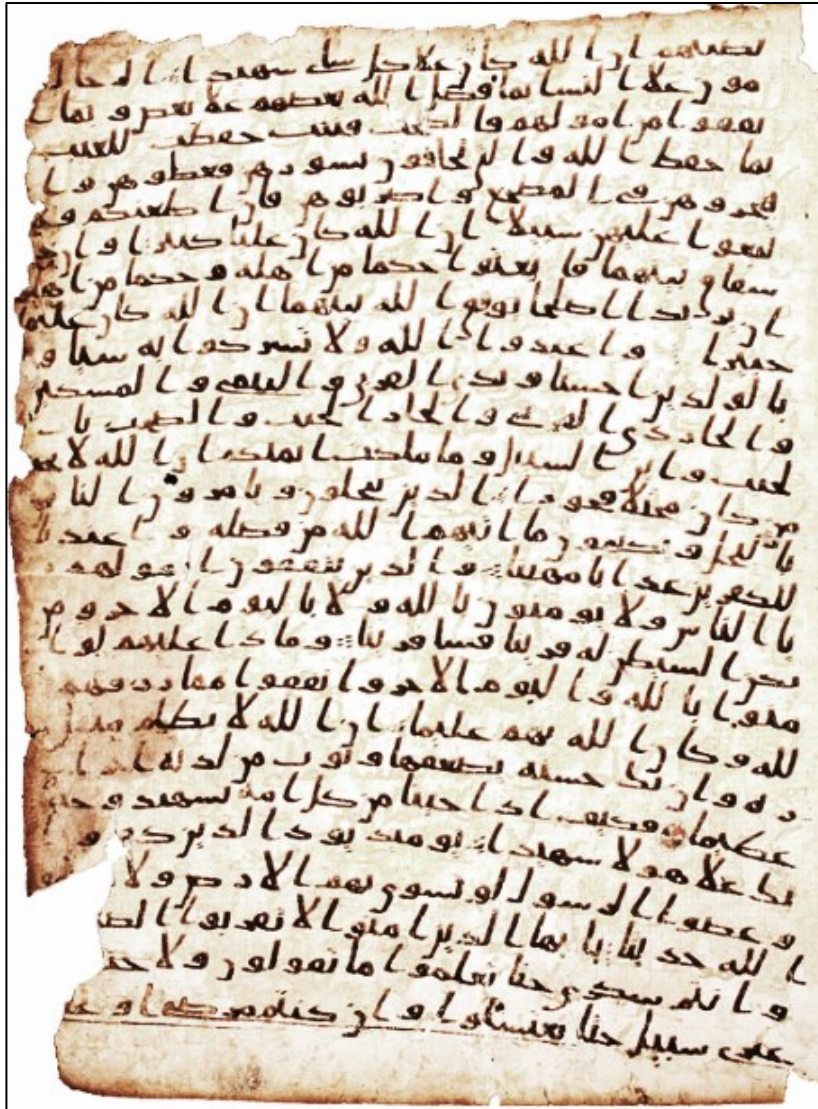 نصيبهم ان الله كان علا كل شى شهيدا الرجال
مون علا النسا بما فضل الله بعضهم علا بعض و بما ا
نفقوا من امولهم فالصلحت قنتت حفظت للغيب
بما حفظ الله و التى تخافون نشوزهن فعظوهن و ا
هجروهن فى المضجع و اضربوهن فان اطعنكم فلا
تبغوا عليهن سبيلا ان الله كان عليا كبيرا و ان
شقاق بينهما فابعثوا حكما من اهله و حكما من اهلها
ان يريدا اصلحا يوفق الله بينهما ان الله كان عليما
خبيرا و اعبدوا الله ولا تشركوا به شيا و
بالولدين احسنا و بذى القربى و اليتمى و المسكين
و الجار ذى القربى و الجار الجنب و الصحب با
لجنب و ابن السبيل و ما ملكت ايمنكم ان الله لا يحب
من كان مختلا فخورا الذين يبخلون و يامرون النا
س بالبخل و يكتمون ما اتيهم الله من فضله و اعتدنا
للكفرين عذابا مهينا و الذين ينفقون امولهم ر
يا الناس ولا يومنون بالله ولا باليوم الاخر و من
يكن الشيطن له قرينا فسا قرينا و ماذا عليهم لو ا
منوا بالله و اليوم الاخر و انفقوا مما رزقهم ا
لله و كان الله بهم عليما ان الله لا يظلم مثقل
ذره و ان تك حسنه يضعفها و يوت من لدنه اجرا
عظيما فكيف اذا جينا من كل امه بشهيد و جينا
بك علا هولا شهيدا يومئذ يود الذين كفروا
و عصوا الرسول لو تسوى بهم الارض ولا
الله حديثا يايها الذين امنوا لا تقربوا الصلوه
و انتم سكرى حتا تعلموا ما تقولون ولا جنبا
على سبيل حتا تغتسلوا و ان كنتم مرضا او على